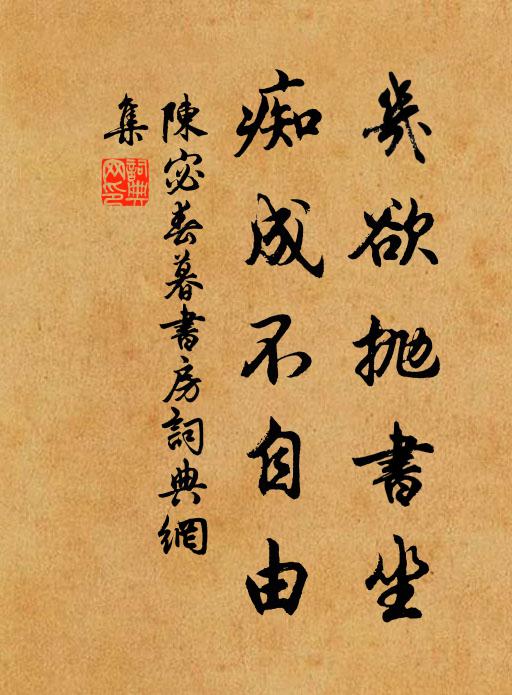 幾欲抛書坐
痴成不自由
陳宓春暮書房詞典網
集
詞典網印